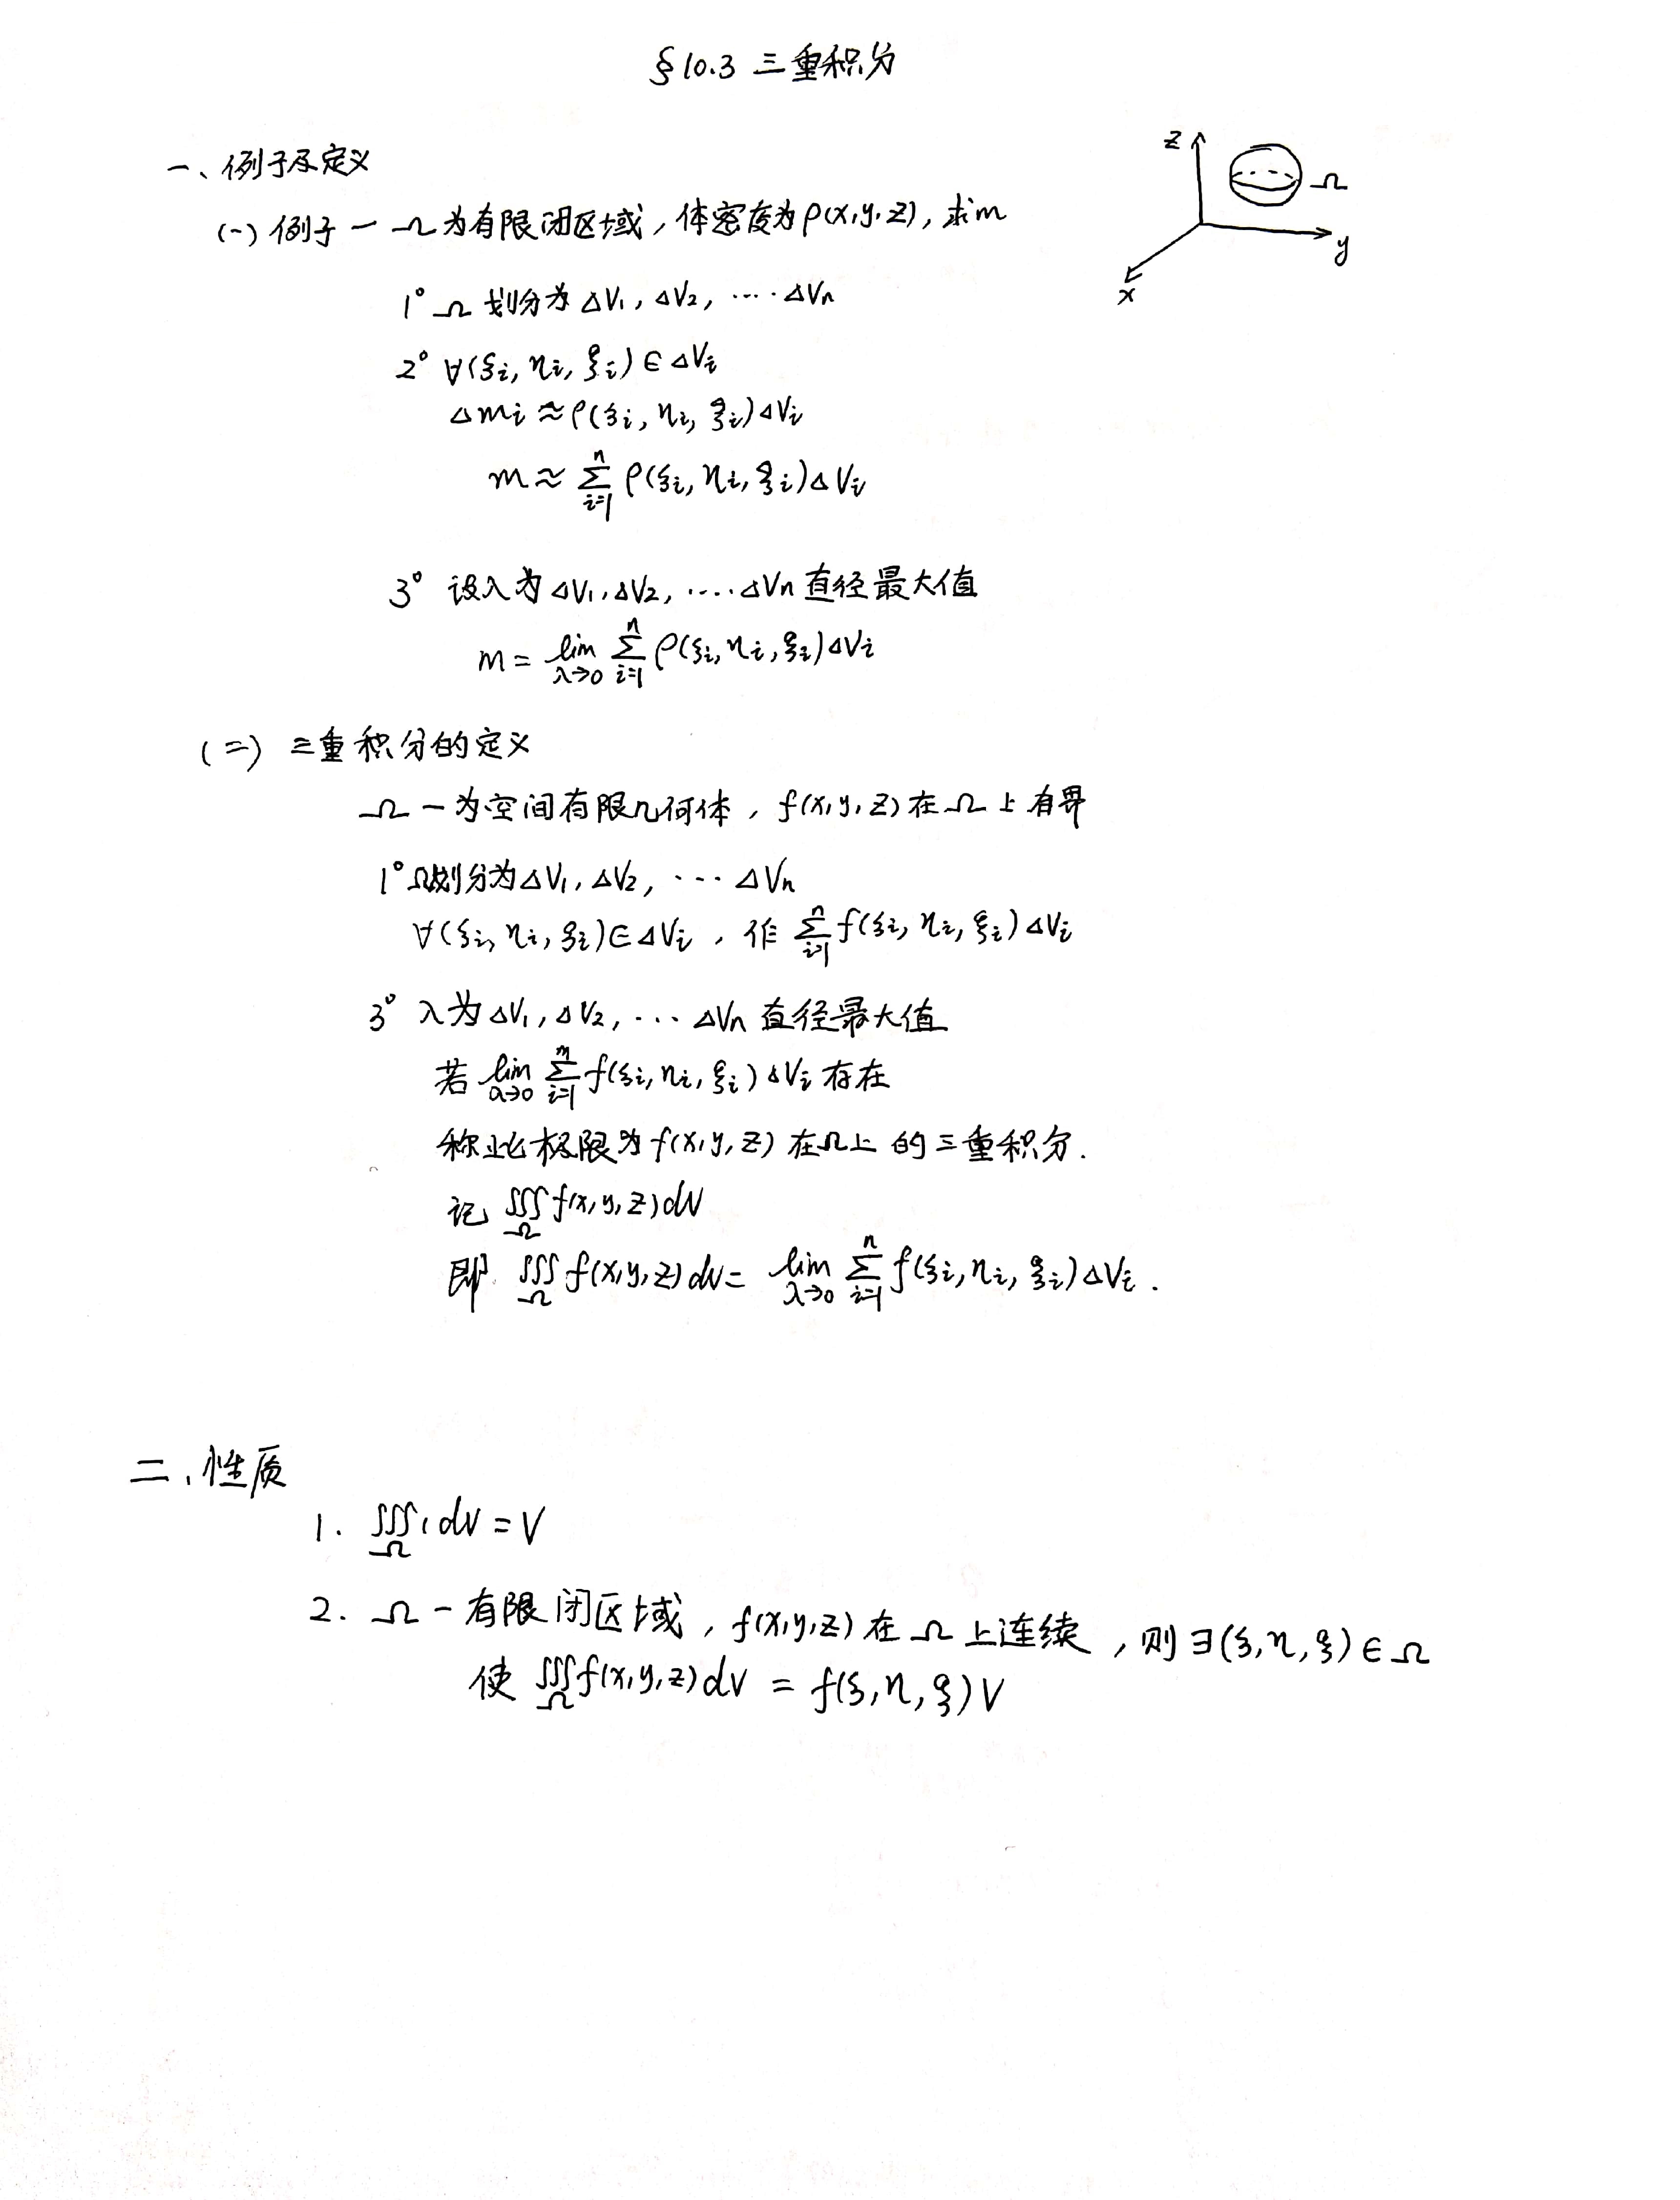 §10.3 三重积分
一、例子及定义
(一) 例子 — Ω为有限闭区域, 体密度为ρ(x,y,z), 求m
z
Ω
y
x
1° Ω 划分为 ΔV₁, ΔV₂, ···· ΔVₙ
2° ∀(ξᵢ, ηᵢ, ζᵢ) ∈ ΔVᵢ
Δmᵢ ≈ ρ(ξᵢ, ηᵢ, ζᵢ)ΔVᵢ
m ≈ ∑ᵢ₌₁ⁿ ρ(ξᵢ, ηᵢ, ζᵢ)ΔVᵢ
3° 设λ为 ΔV₁, ΔV₂, ···· ΔVₙ 直径最大值
m = lim_{λ→0} ∑ᵢ₌₁ⁿ ρ(ξᵢ, ηᵢ, ζᵢ)ΔVᵢ
(二) 三重积分的定义
Ω — 为空间有限几何体, f(x,y,z) 在Ω上有界
1° Ω划分为 ΔV₁, ΔV₂, ··· ΔVₙ
∀(ξᵢ, ηᵢ, ζᵢ) ∈ ΔVᵢ, 作 ∑ᵢ₌₁ⁿ f(ξᵢ, ηᵢ, ζᵢ)ΔVᵢ
3° λ为 ΔV₁, ΔV₂, ··· ΔVₙ 直径最大值
若 lim_{λ→0} ∑ᵢ₌₁ⁿ f(ξᵢ, ηᵢ, ζᵢ)ΔVᵢ 存在
称此极限为 f(x,y,z) 在Ω上的三重积分.
记 ∭_Ω f(x,y,z)dv
即 ∭_Ω f(x,y,z)dv = lim_{λ→0} ∑ᵢ₌₁ⁿ f(ξᵢ, ηᵢ, ζᵢ)ΔVᵢ.
二、性质
1. ∭_Ω 1 dv = V
2. Ω — 有限闭区域, f(x,y,z) 在Ω上连续, 则∃(ξ,η,ζ)∈Ω
使 ∭_Ω f(x,y,z)dv = f(ξ,η,ζ)V